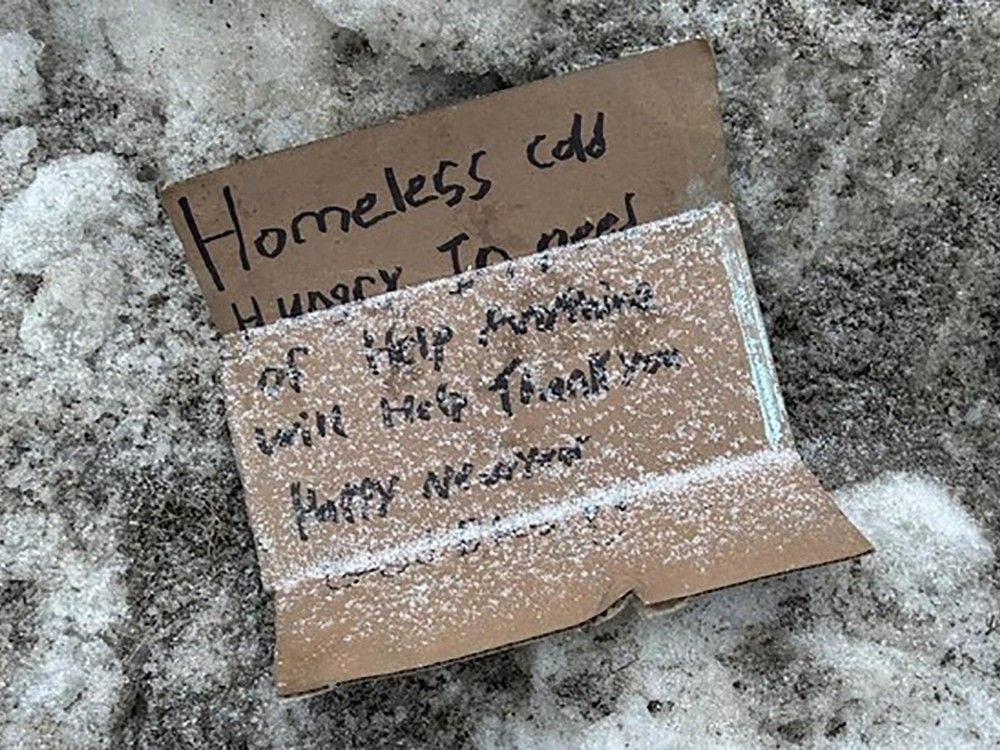 Homeless cold
Hungry In need
of Help Anything
will Help Thank you
Happy New year